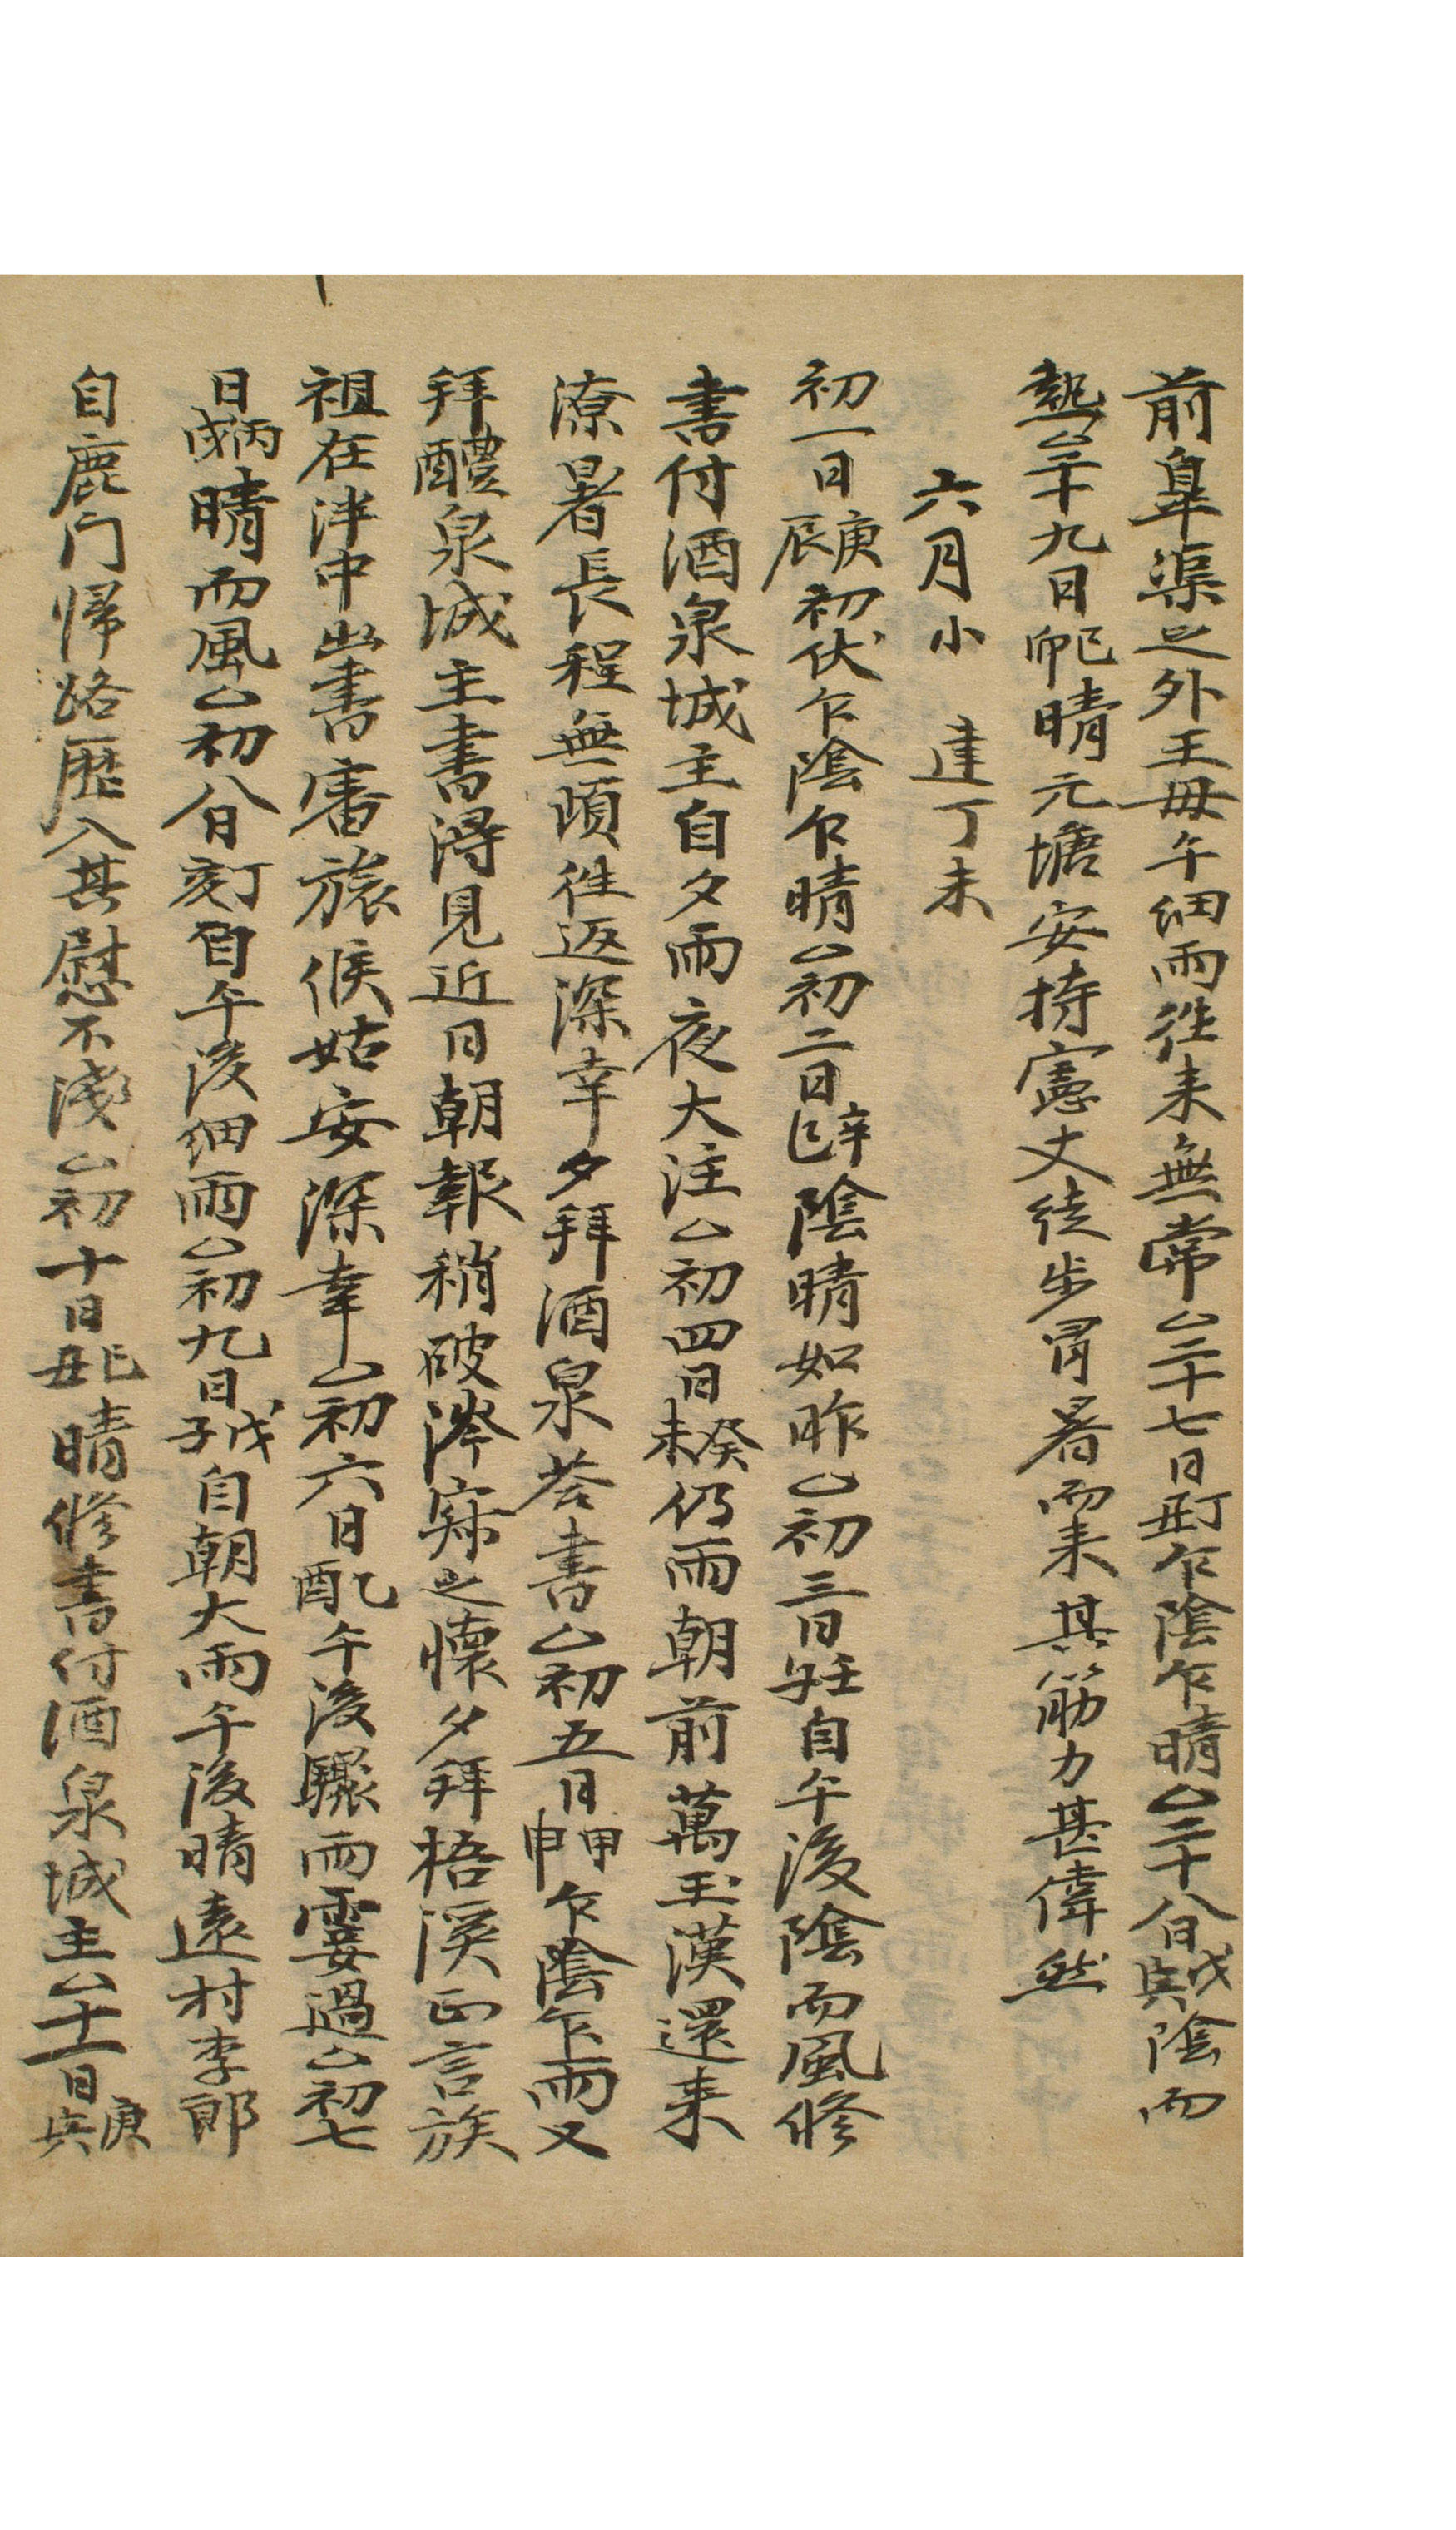 前皐渠之外王母午細雨徃来無常△二十七日丁丑乍陰乍晴△二十八日戊寅陰而
熱△二十九日己卯晴元塘安持憲丈徒步冒暑而来其筋力甚偉然
六月小 建丁未
初一日庚辰初伏乍陰乍晴△初二日辛巳陰晴如昨△初三日壬午自午後陰而風修
書付酒泉城主自夕雨夜大注△初四日癸未仍雨朝前萬玉漢還来
潦暑長程無頉徃返深幸夕拜酒泉荅書△初五日甲申乍陰乍雨又
拜醴泉城主書得見近日朝報稍破涔寂之懷夕拜梧溪正言族
祖在泮中出書審旅候姑安深幸△初六日乙酉午後驟雨霎過△初七
日丙戌晴而風△初八日丁亥自午後細雨△初九日戊子自朝大雨午後晴遠村李郎
自鹿门帰路歷入甚慰不淺△初十日己丑晴修書付酒泉城主△十一日庚寅